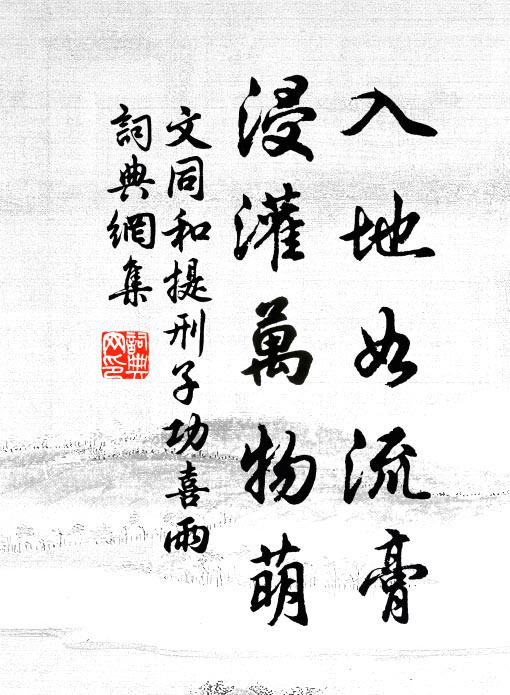 入地如流膏
浸灌萬物萌
文同和提刑子功喜雨
詞典網集
詞典网印